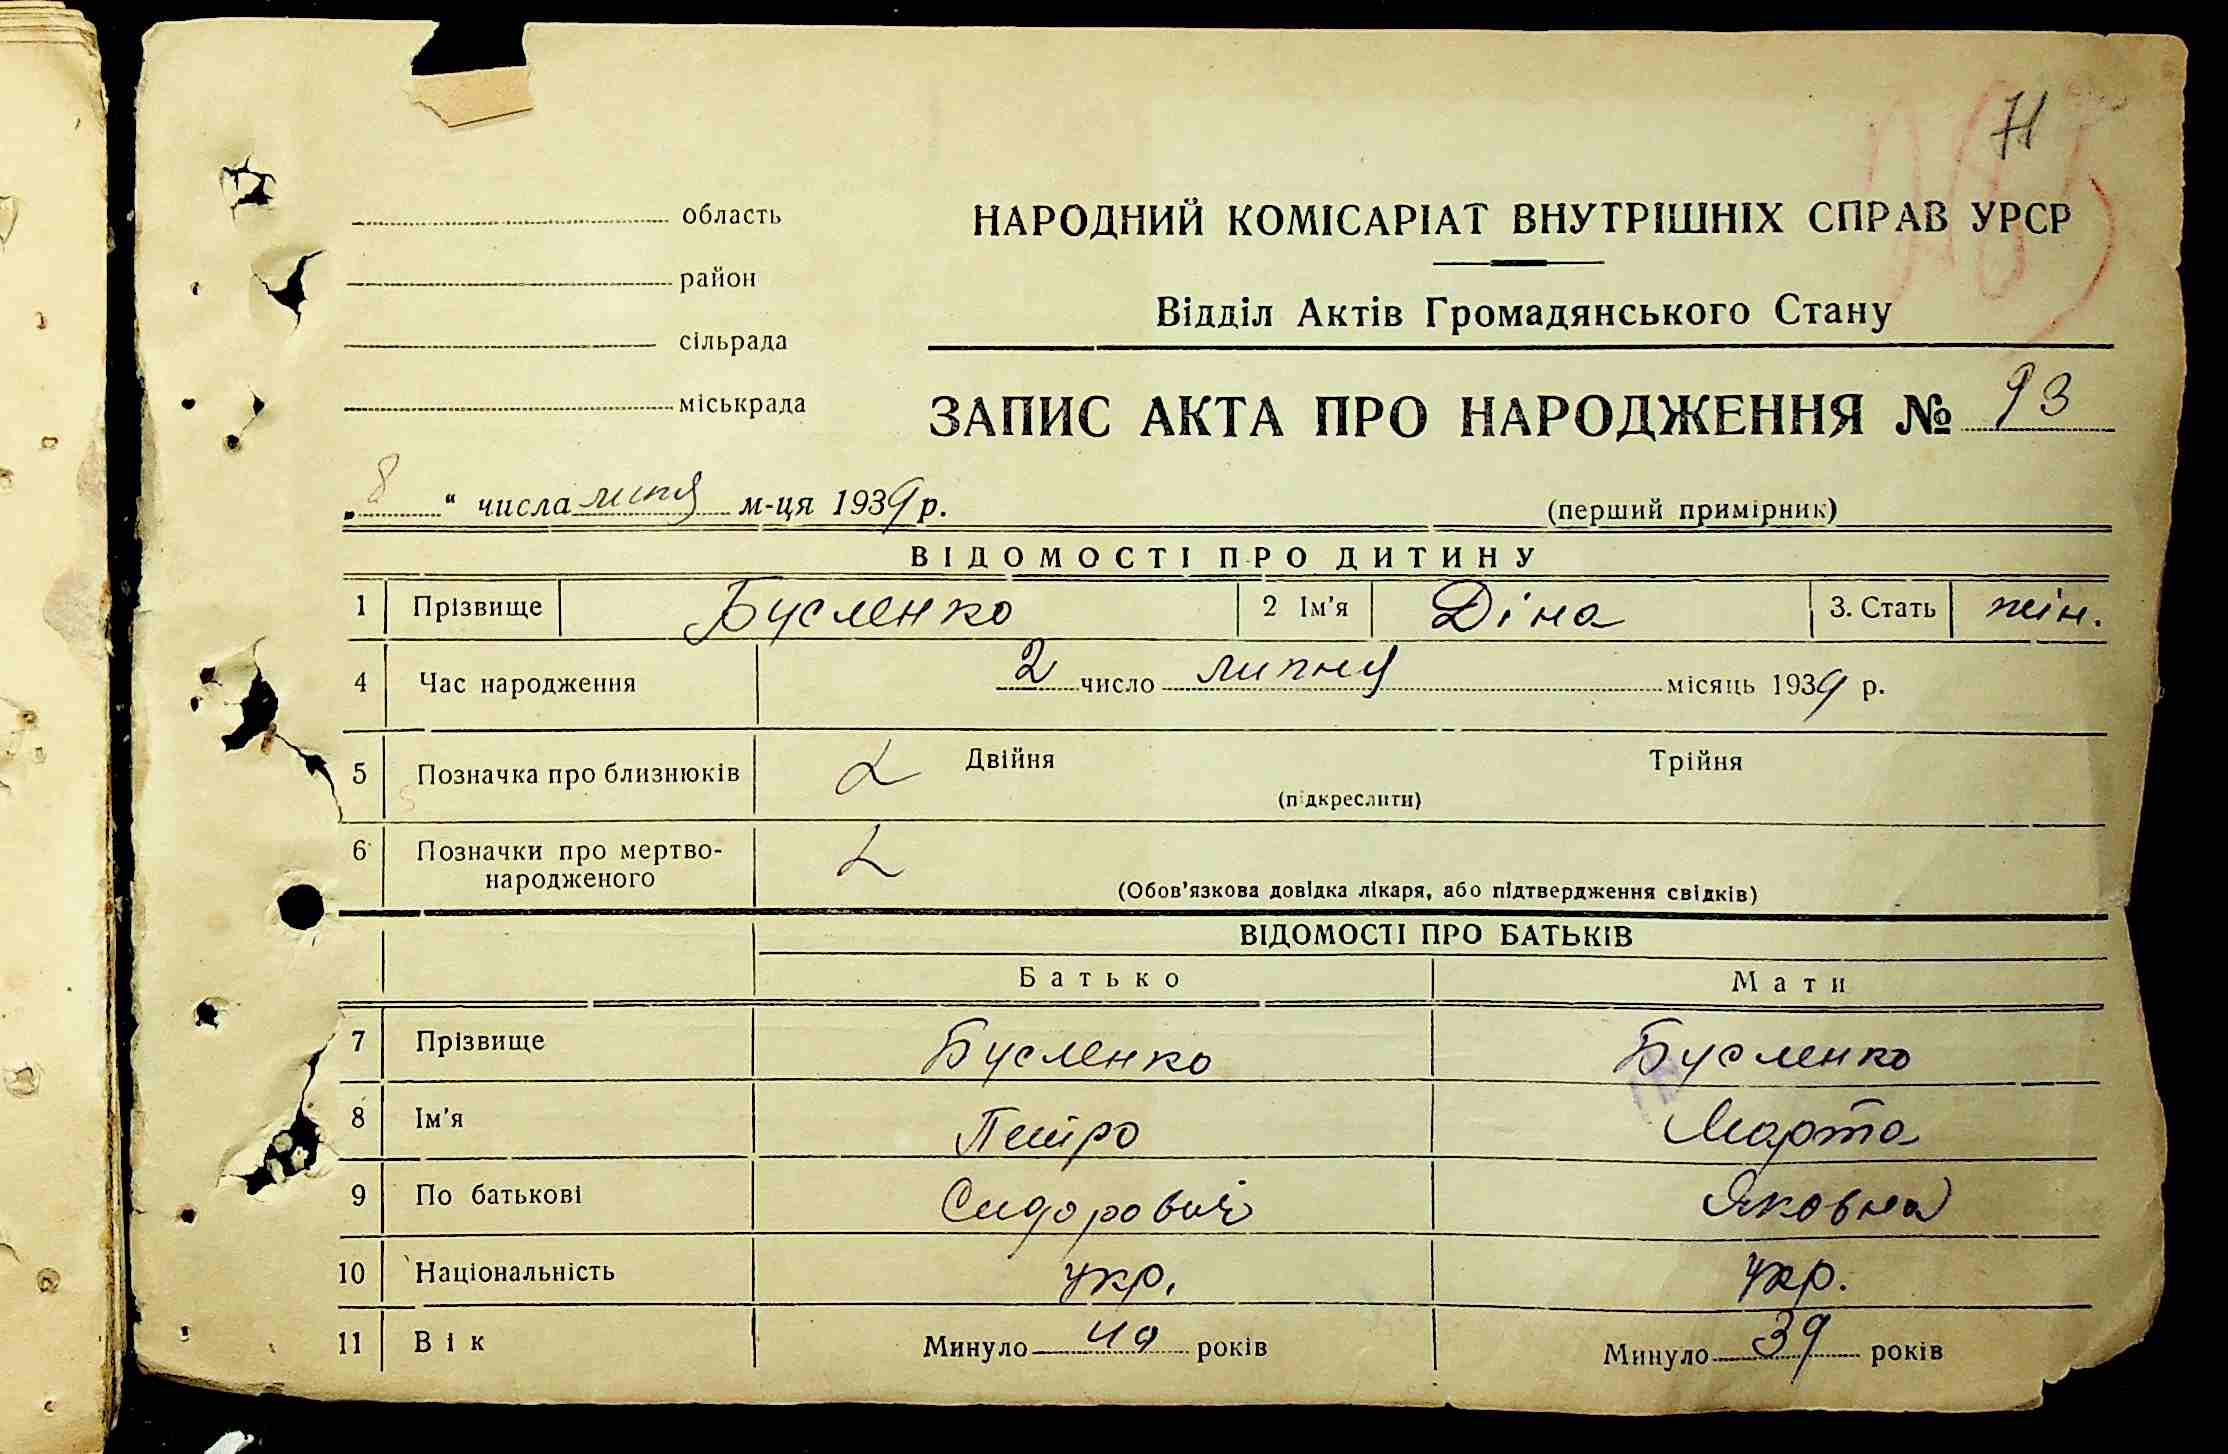 71
область
район
сільрада
міськрада
НАРОДНИЙ КОМІСАРІАТ ВНУТРІШНІХ СПРАВ УРСР
Відділ Актів Громадянського Стану
ЗАПИС АКТА ПРО НАРОДЖЕННЯ № 93
„ 8 “ числа липня м-ця 1939 р.
(перший примірник)
ВІДОМОСТІ ПРО ДИТИНУ
1 Прізвище Бусленко 2 Ім'я Діна 3. Стать жін.
4 Час народження 2 число липня місяць 1939 р.
5 Позначка про близнюків Двійня Трійня
(підкреслити)
6 Позначки про мертво-
народженого
(Обов'язкова довідка лікаря, або підтвердження свідків)
ВІДОМОСТІ ПРО БАТЬКІВ
Батько Мати
7 Прізвище Бусленко Бусленко
8 Ім'я Петро Марта
9 По батькові Сидорович Яковна
10 Національність укр. укр.
11 Вік Минуло 40 років Минуло 39 років